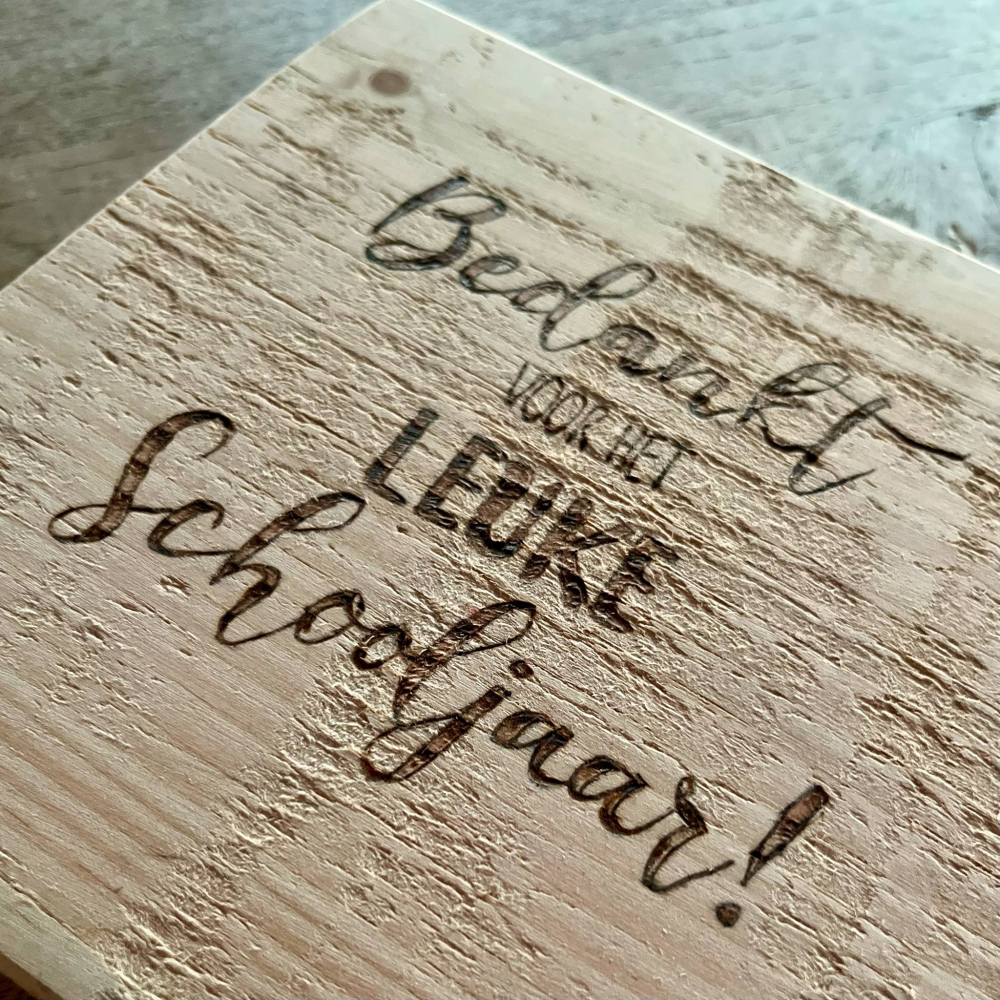 Bedankt
VOOR HET
LEUKE
Schooljaar!